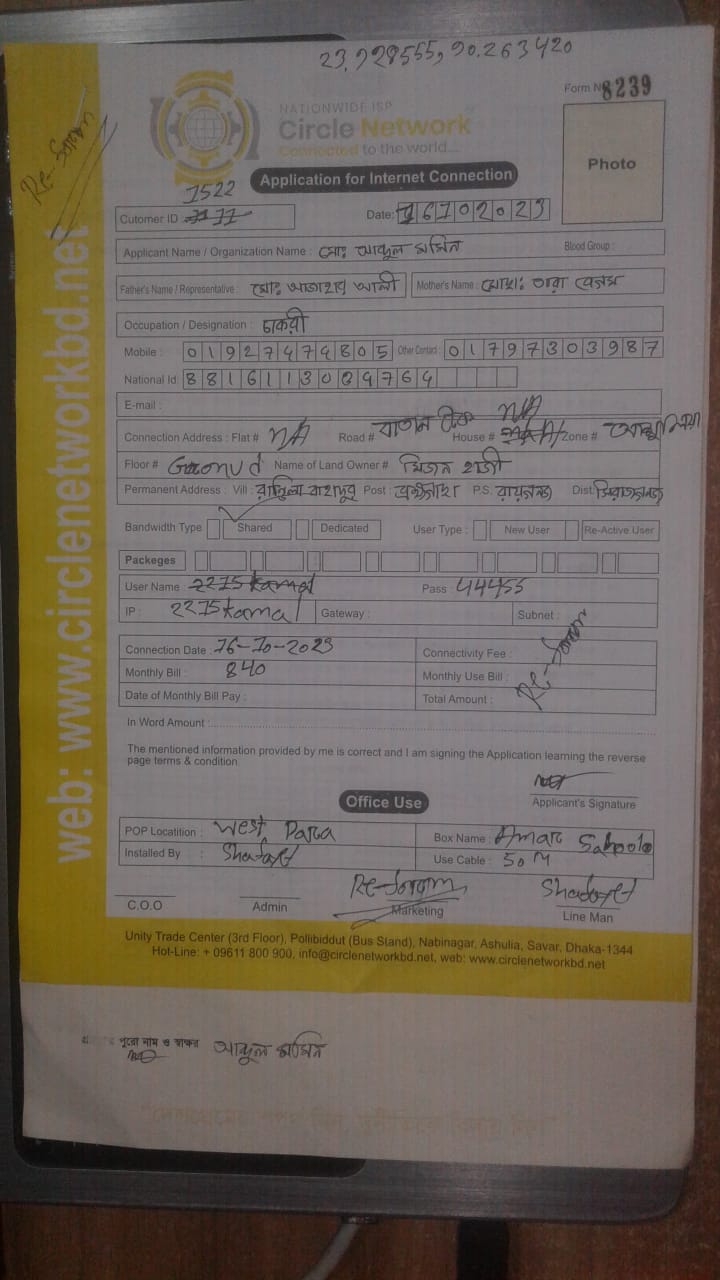 23.928555, 90.263420
Form No 8239
NATIONWIDE ISP
Circle Network
Connected to the world...
Photo
Application for Internet Connection
1522
Cutomer ID
Date: 16102023
Applicant Name / Organization Name : মোঃ আব্দুল মমিন Blood Group :
Father's Name / Representative : মোঃ আতাহার আলী Mother's Name : মোছাঃ তারা বেগম
Occupation / Designation : চাকরী
Mobile : 01927474805 Other Contact : 01797303987
National Id:
E-mail :
N/A
Connection Address : Flat # N/A Road # House # Zone #
Floor # Name of Land Owner # মিজন হাজী
Permanent Address : Vill : Post : P.S. রায়গঞ্জ Dist: সিরাজগঞ্জ
Bandwidth Type Shared Dedicated User Type : New User Re-Active User
Packeges
User Name : 2275kamal Pass 44455
IP : 2275kamal Gateway : Subnet :
Connection Date : 16-10-2023 Connectivity Fee :
Monthly Bill : 840 Monthly Use Bill :
Date of Monthly Bill Pay : Total Amount :
In Word Amount :
The mentioned information provided by me is correct and I am signing the Application learning the reverse
page terms & condition
Applicant's Signature
Office Use
POP Locatition : West Para Box Name :
Installed By : Use Cable : 50 M
C.O.O Admin Marketing Line Man
Unity Trade Center (3rd Floor), Pollibiddut (Bus Stand), Nabinagar, Ashulia, Savar, Dhaka-1344
Hot-Line: + 09611 800 900, info@circlenetworkbd.net, web: www.circlenetworkbd.net
পুরো নাম ও স্বাক্ষর আব্দুল মমিন
web: www.circlenetworkbd.net